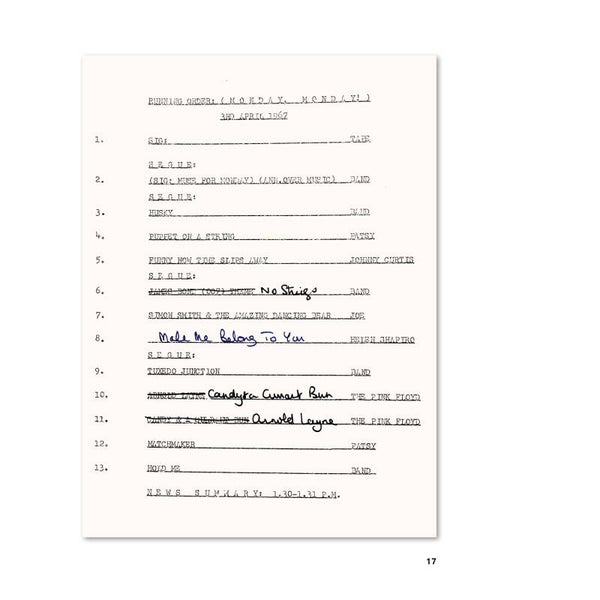 RUNNING ORDER: ( M O N D A Y,  M O N D A Y! )
3RD APRIL 1967
1. SIG: TAPE
S E G U E:
2. (SIG: MUSIC FOR MONDAY) (ANN. OVER MUSIC) BAND
S E G U E:
3. HUSKY BAND
4. PUPPET ON A STRING PATSY
5. FUNNY HOW TIME SLIPS AWAY JOHNNY CURTIS
S E G U E:
6. JAMES BOND (007) THEME No Strings BAND
7. SIMON SMITH & THE AMAZING DANCING BEAR JOE
8. Make Me Belong To You HELEN SHAPIRO
S E G U E:
9. TUXEDO JUNCTION BAND
10. ARNOLD LAYNE Candy + a Currant Bun THE PINK FLOYD
11. CANDY & A BUN Arnold Layne THE PINK FLOYD
12. MATCHMAKER PATSY
13. HOLD ME BAND
N E W S  S U M M A R Y:  1.30-1.31 P.M.
17